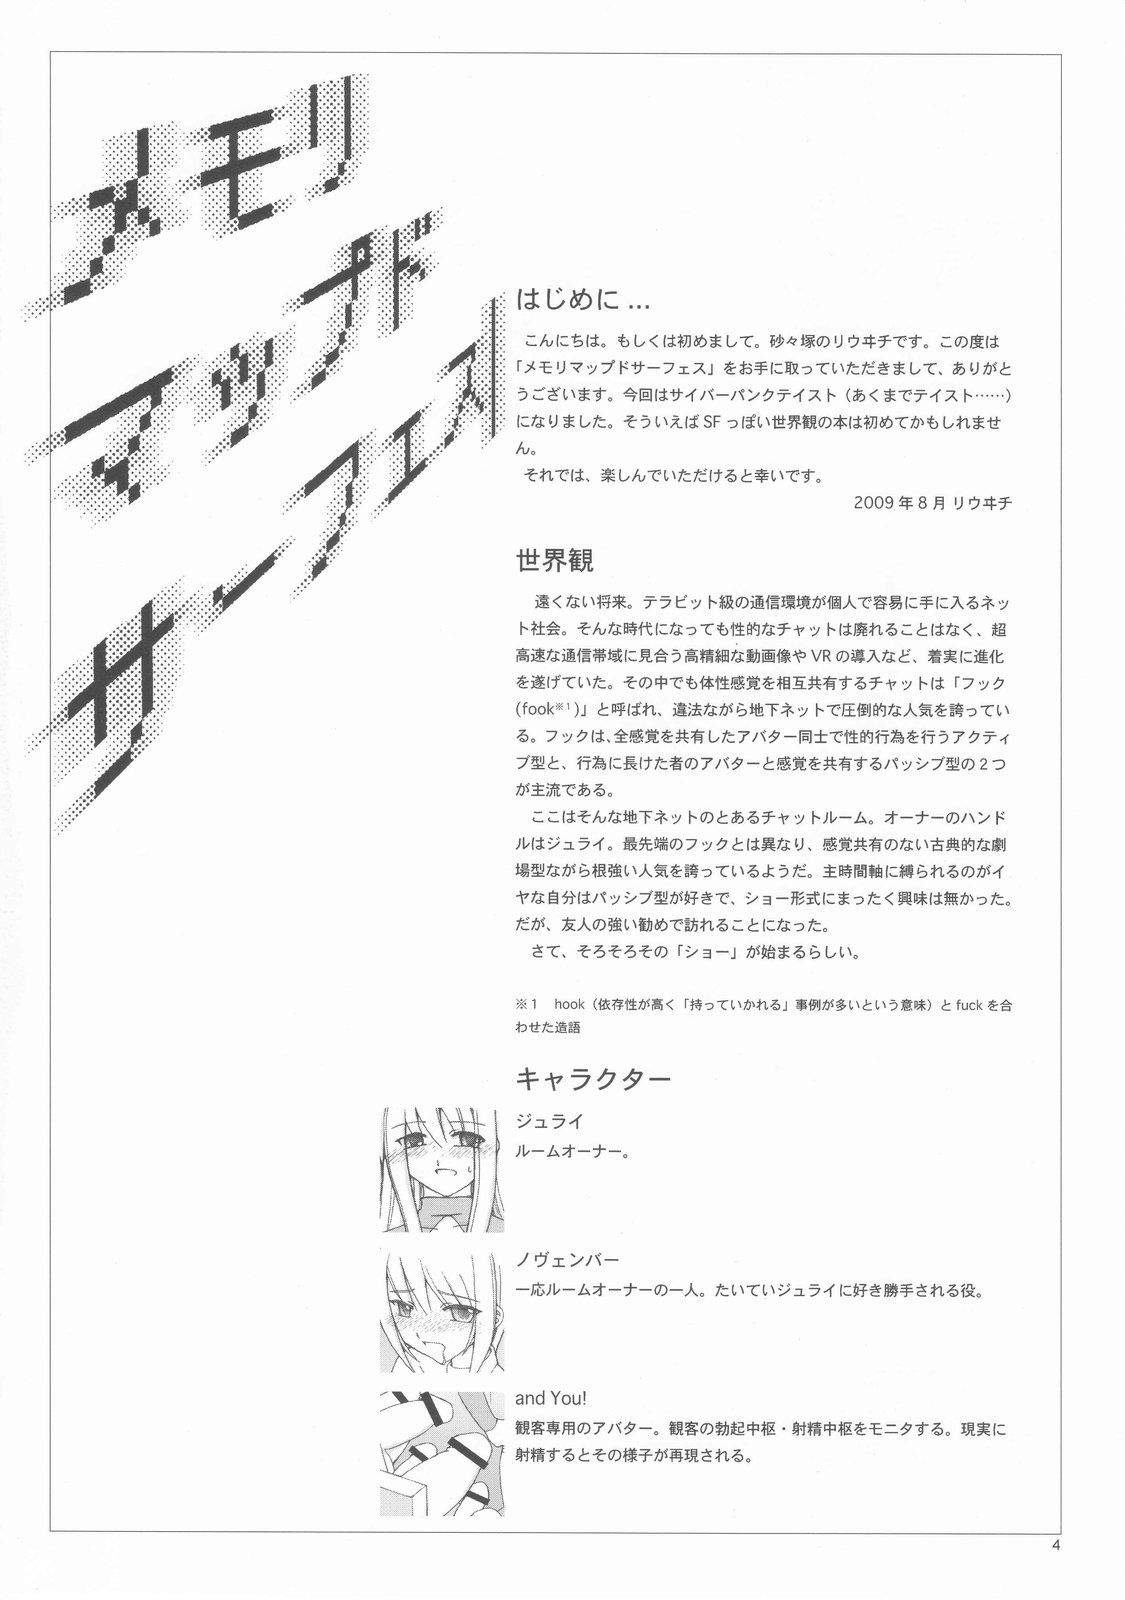 メモリ
マップド
サーフェス
はじめに ...
こんにちは。もしくは初めまして。砂々塚のリウヰチです。この度は
「メモリマップドサーフェス」をお手に取っていただきまして、ありがと
うございます。今回はサイバーパンクテイスト（あくまでテイスト……）
になりました。そういえば SF っぽい世界観の本は初めてかもしれませ
ん。
それでは、楽しんでいただけると幸いです。
2009 年 8 月 リウヰチ
世界観
遠くない将来。テラビット級の通信環境が個人で容易に手に入るネッ
ト社会。そんな時代になっても性的なチャットは廃れることはなく、超
高速な通信帯域に見合う高精細な動画像や VR の導入など、着実に進化
を遂げていた。その中でも体性感覚を相互共有するチャットは「フック
(fook※1)」と呼ばれ、違法ながら地下ネットで圧倒的な人気を誇ってい
る。フックは、全感覚を共有したアバター同士で性的行為を行うアクティ
ブ型と、行為に長けた者のアバターと感覚を共有するパッシブ型の 2 つ
が主流である。
ここはそんな地下ネットのとあるチャットルーム。オーナーのハンド
ルはジュライ。最先端のフックとは異なり、感覚共有のない古典的な劇
場型ながら根強い人気を誇っているようだ。主時間軸に縛られるのがイ
ヤな自分はパッシブ型が好きで、ショー形式にまったく興味は無かった。
だが、友人の強い勧めで訪れることになった。
さて、そろそろその「ショー」が始まるらしい。
※1 hook（依存性が高く「持っていかれる」事例が多いという意味）と fuck を合
わせた造語
キャラクター
ジュライ
ルームオーナー。
ノヴェンバー
一応ルームオーナーの一人。たいていジュライに好き勝手される役。
and You!
観客専用のアバター。観客の勃起中枢・射精中枢をモニタする。現実に
射精するとその様子が再現される。
4